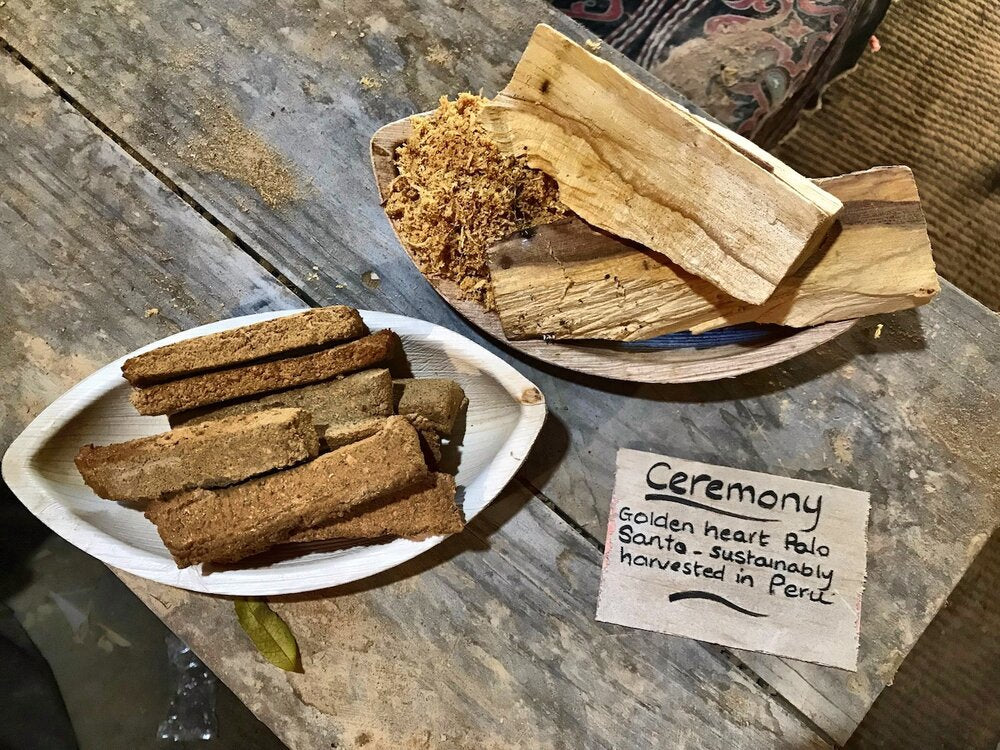 Ceremony
Golden heart Palo
Santo - sustainably
harvested in Peru.